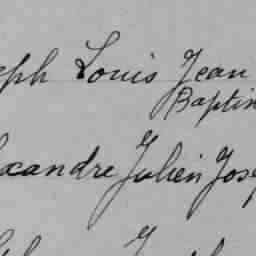 eph Louis Jean
Baptis
exandre Julien Jose